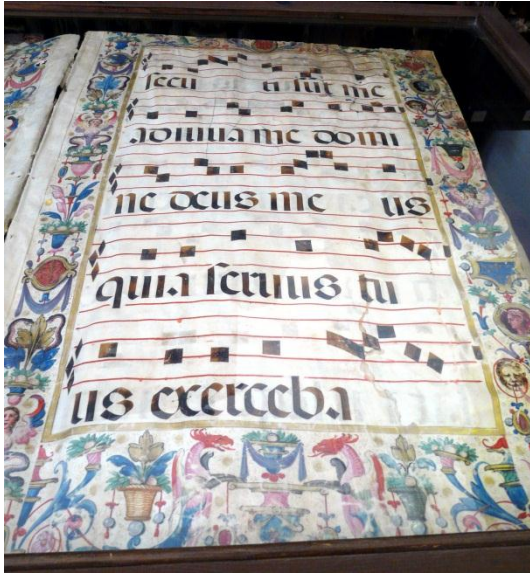 secu ti sut me
adiuua me domi
ne deus me us
quia seruus tu
us exerceba